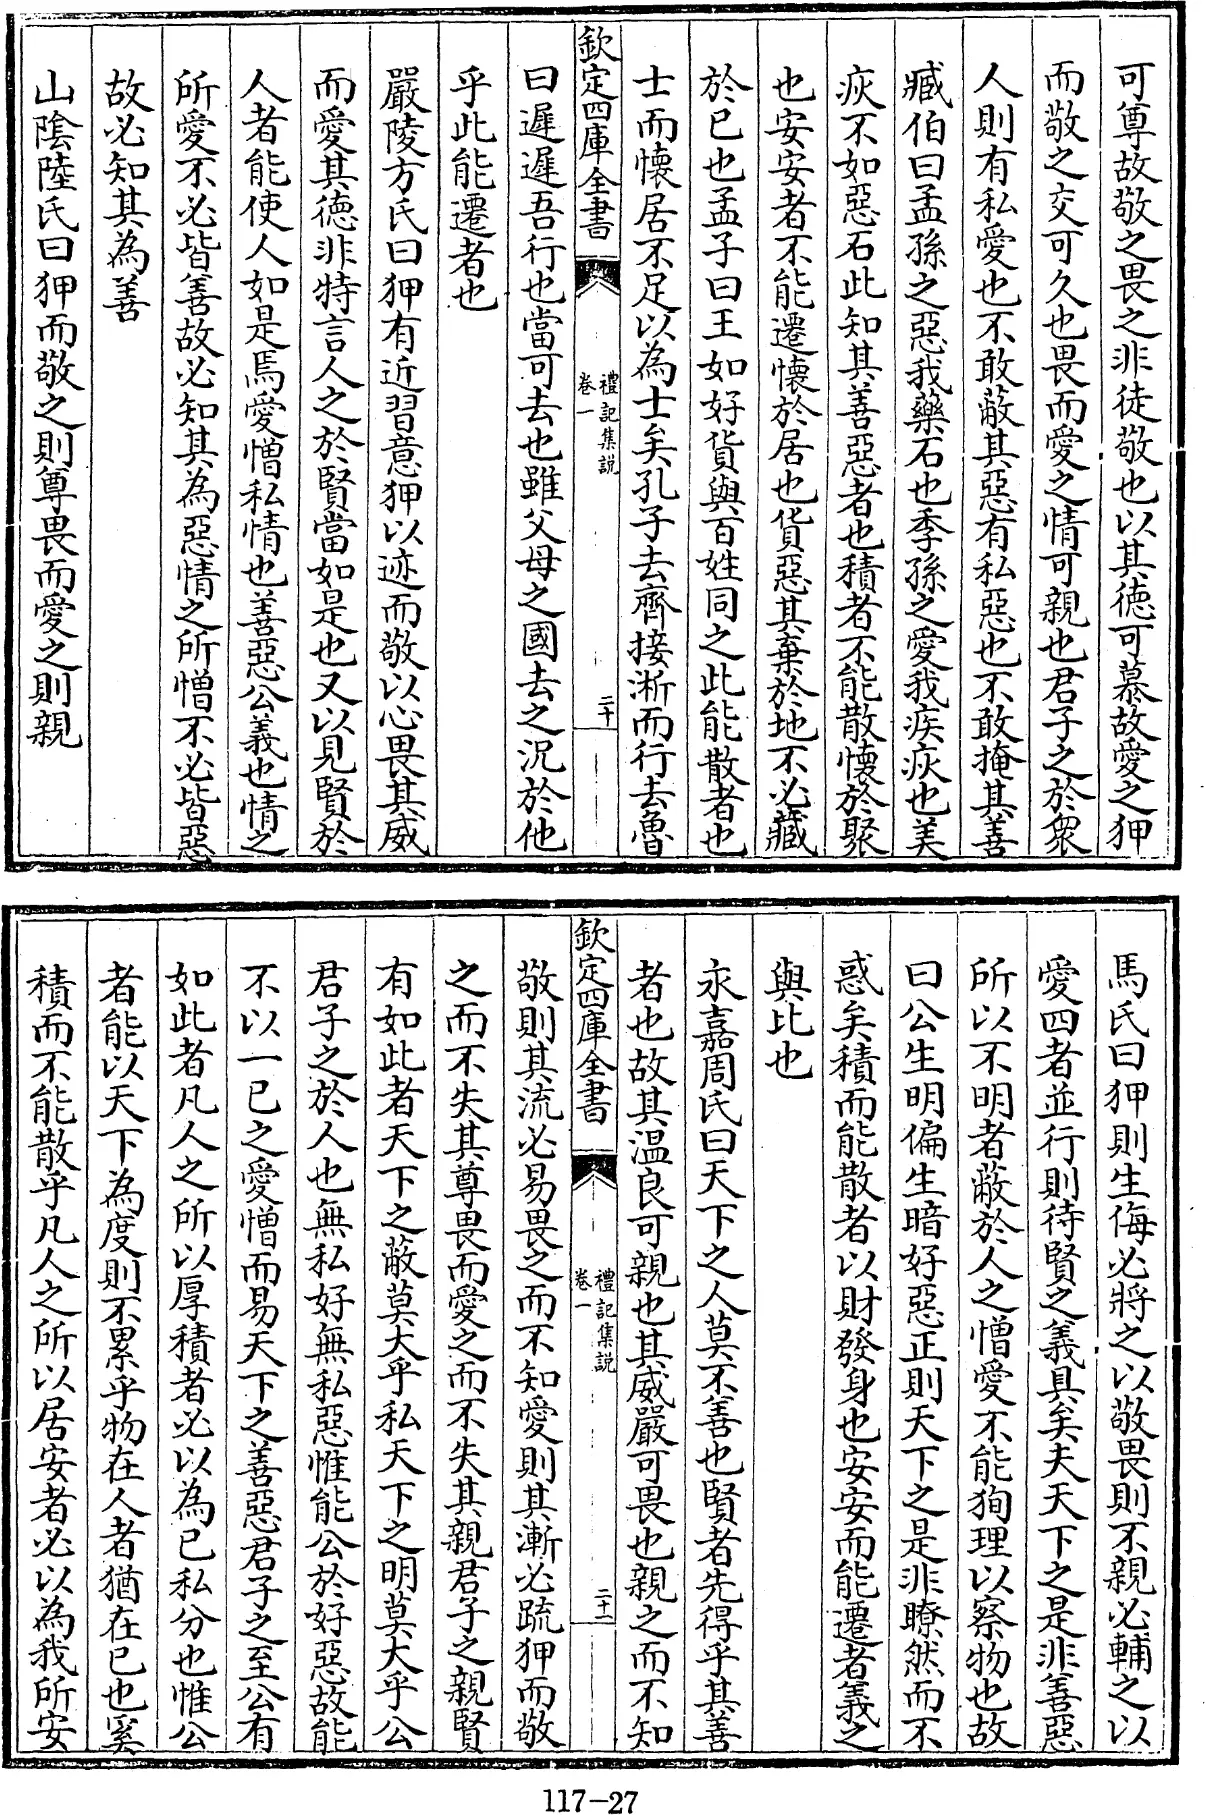 可尊故敬之畏之非徒敬也以其德可慕故愛之狎
而敬之交可久也畏而愛之情可親也君子之於衆
人則有私愛也不敢蔽其惡有私惡也不敢掩其善
臧伯曰孟孫之惡我藥石也季孫之愛我疾疢也美
疢不如惡石此知其善惡者也積者不能散懷於聚
也安安者不能遷懷於居也貨惡其棄於地不必藏
於已也孟子曰王如好貨與百姓同之此能散者也
士而懷居不足以為士矣孔子去齊接淅而行去魯
欽定四庫全書
禮記集說
卷一
二十
曰遲遲吾行也當可去也雖父母之國去之況於他
乎此能遷者也
嚴陵方氏曰狎有近習意狎以迹而敬以心畏其威
而愛其德非特言人之於賢當如是也又以見賢於
人者能使人如是焉愛憎私情也善惡公義也情之
所愛不必皆善故必知其為惡情之所憎不必皆惡
故必知其為善
山陰陸氏曰狎而敬之則尊畏而愛之則親
馬氏曰狎則生侮必將之以敬畏則不親必輔之以
愛四者並行則待賢之義具矣夫天下之是非善惡
所以不明者蔽於人之憎愛不能狥理以察物也故
曰公生明偏生暗好惡正則天下之是非瞭然而不
惑矣積而能散者以財發身也安安而能遷者義之
與比也
永嘉周氏曰天下之人莫不善也賢者先得乎其善
者也故其温良可親也其威嚴可畏也親之而不知
欽定四庫全書
禮記集說
卷一
二十一
敬則其流必易畏之而不知愛則其漸必疏狎而敬
之而不失其尊畏而愛之而不失其親君子之親賢
有如此者天下之蔽莫大乎私天下之明莫大乎公
君子之於人也無私好無私惡惟能公於好惡故能
不以一已之愛憎而易天下之善惡君子之至公有
如此者凡人之所以厚積者必以為已私分也惟公
者能以天下為度則不累乎物在人者猶在已也奚
積而不能散乎凡人之所以居安者必以為我所安
117-27